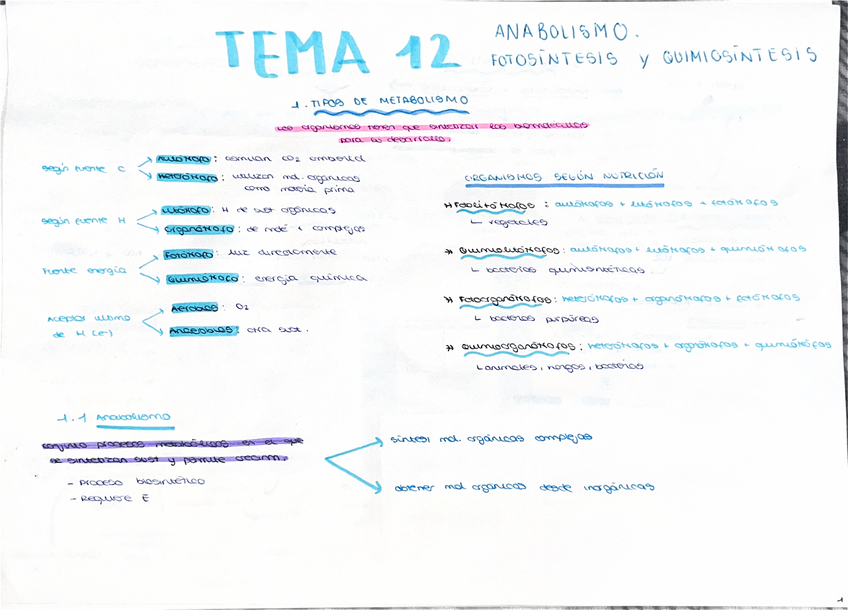 TEMA 12
ANABOLISMO.
FOTOSÍNTESIS y QUIMIOSÍNTESIS
1. TIPOS DE METABOLISMO
Los organismos tienen que sintetizar las biomoléculas
para su desarrollo.
según fuente C
Autótrofo: asimilan CO2 ambiental
Heterótrofo: utilizan mol. orgánicas
como materia prima
según fuente H
Litótrofo: H de sust orgánicas
Organótrofo: de molé + complejas
Fuente energía
Fotótrofo: luz directamente
Quimiótrofo: energía química
Aceptor último
de H (e-)
Aerobios: O2
Anaerobios: otra sust.
ORGANISMOS SEGÚN NUTRICIÓN
* Fotolitótrofos: autótrofos + litótrofos + fotótrofos
└ vegetales
* Quimiolitótrofos: autótrofos + litótrofos + quimiótrofos
└ bacterias quimiosintéticas
* Fotoorganótrofos: heterótrofos + organótrofos + fotótrofos
└ bacterias purpúreas
* Quimiorganótrofos: heterótrofos + organótrofos + quimiótrofos
└ animales, hongos, bacterias
1.1 Anabolismo
conjunto procesos metabólicos en el que
se sintetizan sust y permite crecim.
- Proceso biosintético
- Requiere E
síntesi mol. orgánicas complejas
obtener mol orgánicas desde inorgánicas
1